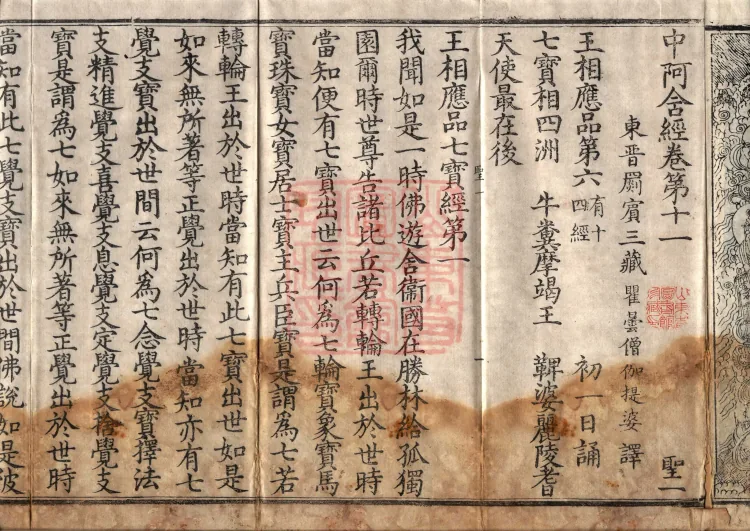 中阿含經卷第十一 聖一
東晉罽賓三藏瞿曇僧伽提婆譯
王相應品第六有十四經 初一日誦
七寶相四洲 牛糞摩竭王 鞞婆麗陵耆
天使最在後
聖一
王相應品七寶經第一
我聞如是一時佛遊舍衛國在勝林給孤獨
園爾時世尊告諸比丘若轉輪王出於世時
當知便有七寶出世云何爲七輪寶象寶馬
寶珠寶女寶居士寶主兵臣寶是謂爲七若
轉輪王出於世時當知有此七寶出世如是
如來無所著等正覺出於世時當知亦有七
覺支寶出於世間云何爲七念覺支寶擇法
支精進覺支喜覺支息覺支定覺支捨覺支
寶是謂爲七如來無所著等正覺出於世時
當知有此七覺支寶出於世間佛說如是彼